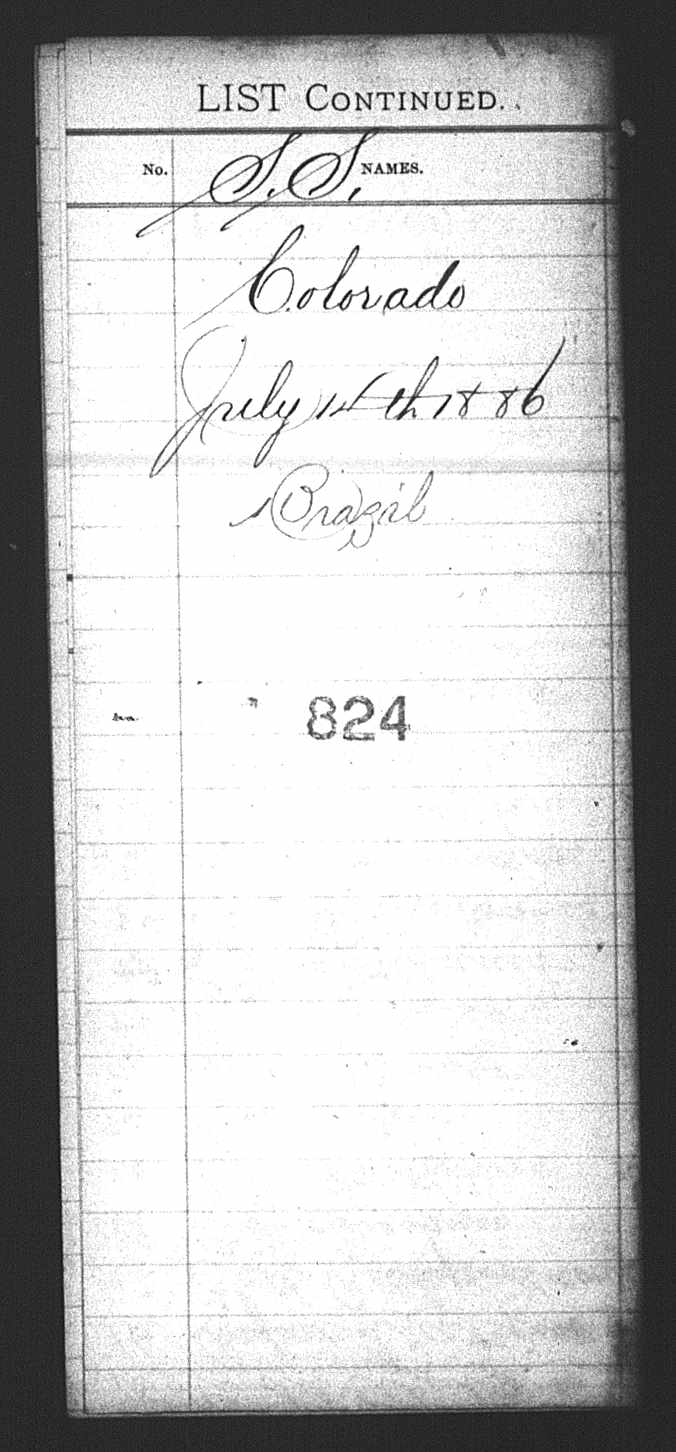 LIST CONTINUED.
No. NAMES.
S.S.
Colorado
July 14th 1886
Brazil
824